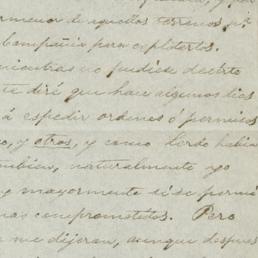 pormenor de aquellos terrenos pr.
Compañia para esplotarlos.
mientras no pudiese decirte
te diré que hace algunos dias
á espedir ordenes ó permisos
y otros, y como Lerdo habia
tambien, naturalmente yo
mayormente si se permi
mas comprometidos. Pero
me dijeran, aunque despues